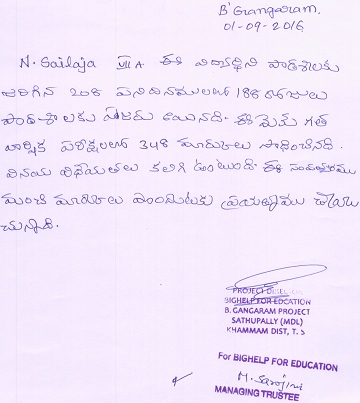 B' Grangaram.
01-09-2016
N. Sailaja VII A ఈ విద్యార్థిని పాఠశాలకు
జరిగిన 208 పనిదినములలో 188 రోజులు
పాఠశాలకు హాజరు అయినది. ఈమె గత
వార్షిక పరీక్షలలో 348 మార్కులు సాధించినది.
వినయ విధేయతలు కలిగి ఉంటుంది. ఈ సంవత్సరము
మంచి మార్కులు పొందుటకు ప్రయత్నము చేయు
చున్నది.
PROJECT
BIGHELP FOR EDCATION
B. GANGARAM PROJECT
SATHUPALLY (MDL)
KHAMMAM DIST, T. S
For BIGHELP FOR EDUCATION
M. Sarojini
MANAGING TRUSTEE